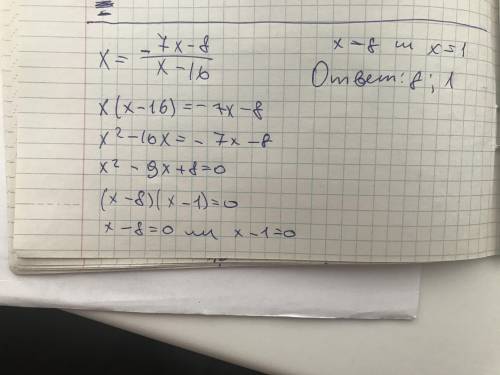 x = -7x-8 / x-16
x(x-16)=-7x-8
x²-16x=-7x-8
x²-9x+8=0
(x-8)(x-1)=0
x-8=0 или x-1=0
x=8 или x=1
Ответ: 8; 1